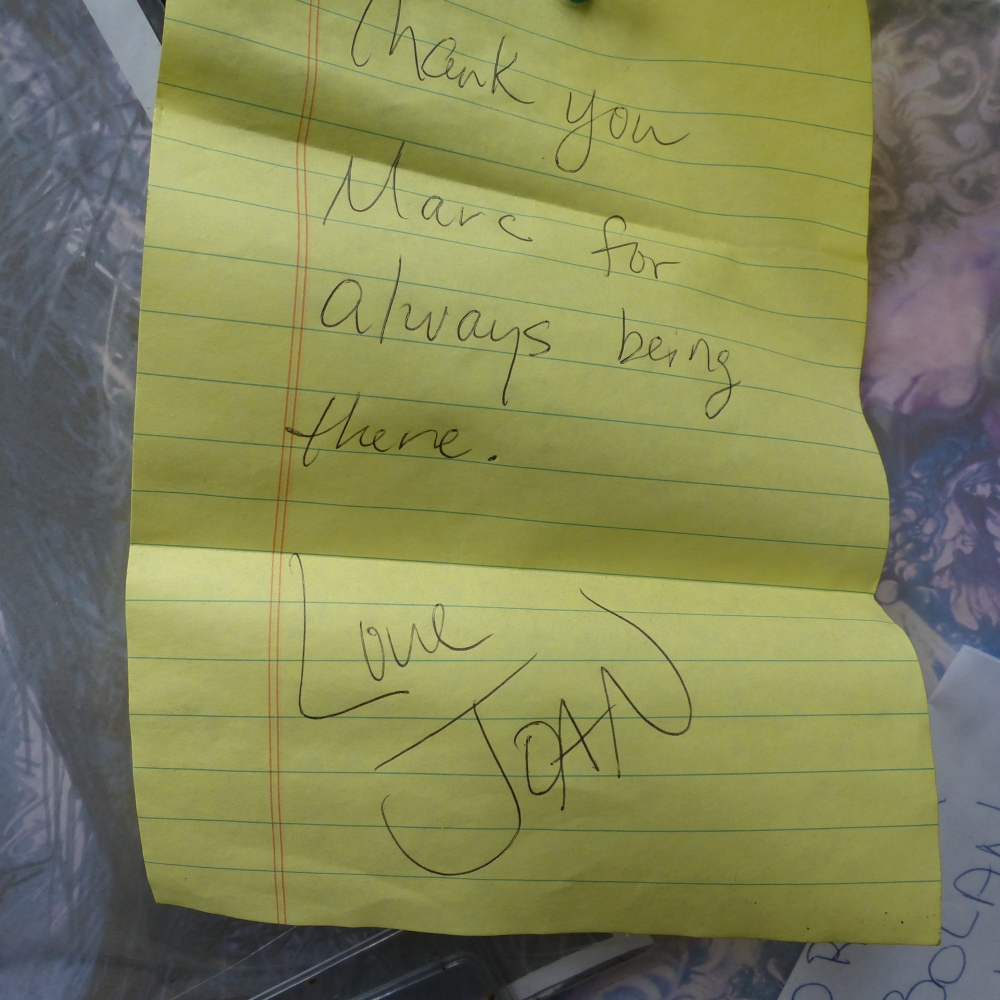 Thank you
Marc for
always being
there.
Love
JOAN
BOLAN